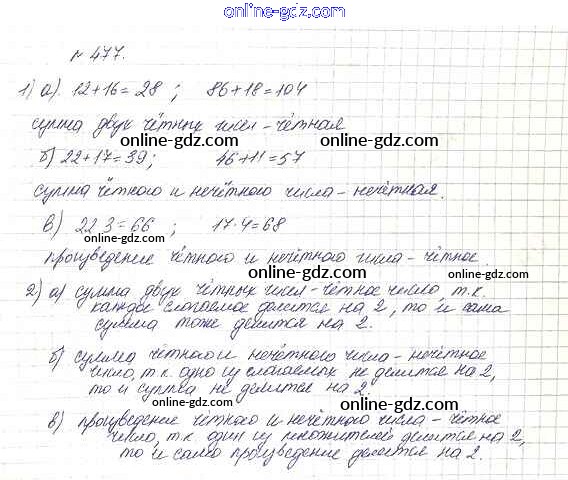 online-gdz.com
№ 477.
1) а). 12+16=28 ; 86+18=104
сумма двух чётных чисел - чётная
online-gdz.com online-gdz.com
б) 22+17=39; 46+11=57
online-gdz.com
сумма чётного и нечётного числа - нечётная.
в) 22·3=66 ; 17·4=68
online-gdz.com online-gdz.com
произведение чётного и нечётного числа - чётное.
online-gdz.com
2) а) сумма двух чётных чисел - чётное число, т.к.
каждое слагаемое делится на 2, то и сама
online-gdz.com
сумма тоже делится на 2.
online-gdz.com
б) сумма чётного и нечётного числа - нечётное
число, т.к. одно из слагаемых не делится на 2,
online-gdz.com
то и сумма не делится на 2.
online-gdz.com
в) произведение чётного и нечётного числа - чётное
число, т.к. один из множителей делится на 2,
то и само произведение делится на 2.
online-gdz.com